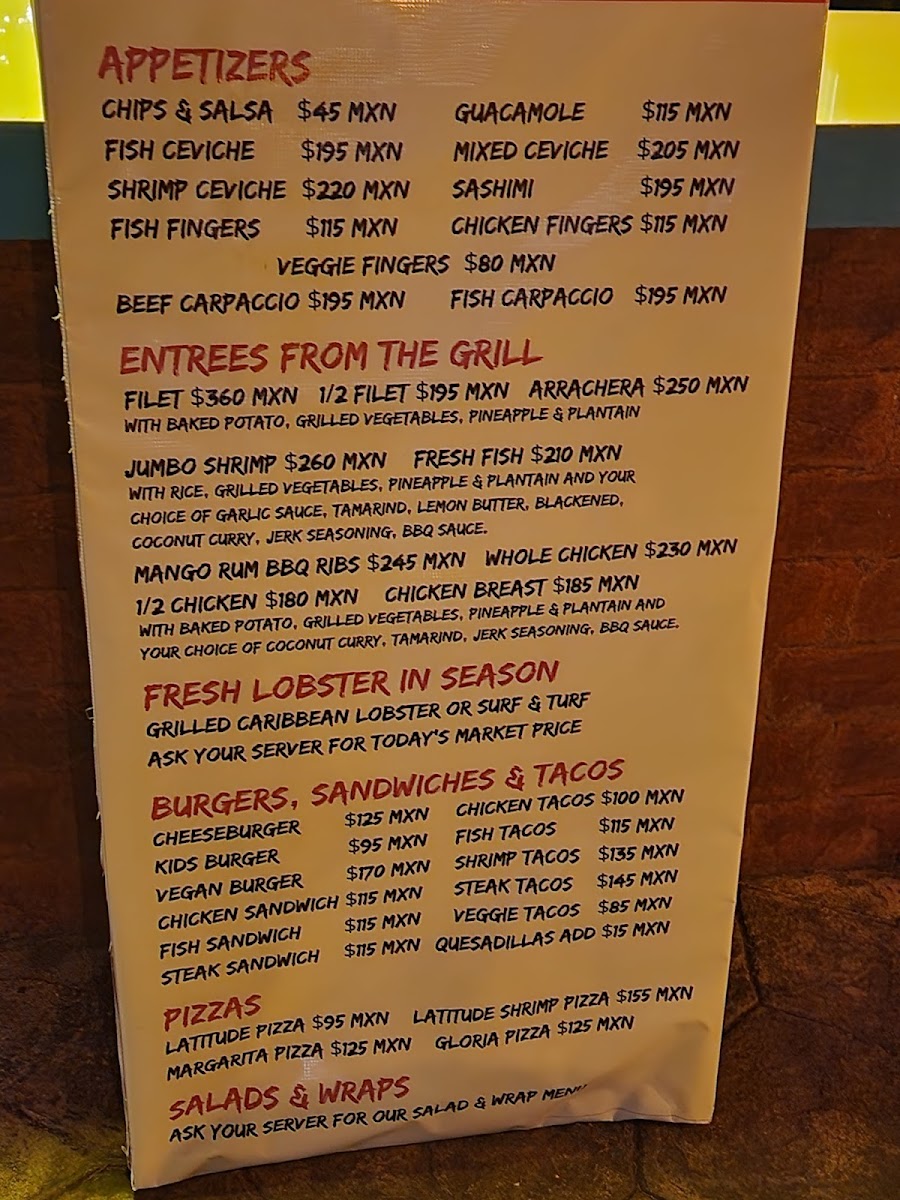 APPETIZERS
CHIPS & SALSA $45 MXN GUACAMOLE $115 MXN
FISH CEVICHE $195 MXN MIXED CEVICHE $205 MXN
SHRIMP CEVICHE $220 MXN SASHIMI $195 MXN
FISH FINGERS $115 MXN CHICKEN FINGERS $115 MXN
VEGGIE FINGERS $80 MXN
BEEF CARPACCIO $195 MXN FISH CARPACCIO $195 MXN
ENTREES FROM THE GRILL
FILET $360 MXN 1/2 FILET $195 MXN ARRACHERA $250 MXN
WITH BAKED POTATO, GRILLED VEGETABLES, PINEAPPLE & PLANTAIN
JUMBO SHRIMP $260 MXN FRESH FISH $210 MXN
WITH RICE, GRILLED VEGETABLES, PINEAPPLE & PLANTAIN AND YOUR
CHOICE OF GARLIC SAUCE, TAMARIND, LEMON BUTTER, BLACKENED,
COCONUT CURRY, JERK SEASONING, BBQ SAUCE.
MANGO RUM BBQ RIBS $245 MXN WHOLE CHICKEN $230 MXN
1/2 CHICKEN $180 MXN CHICKEN BREAST $185 MXN
WITH BAKED POTATO, GRILLED VEGETABLES, PINEAPPLE & PLANTAIN AND
YOUR CHOICE OF COCONUT CURRY, TAMARIND, JERK SEASONING, BBQ SAUCE.
FRESH LOBSTER IN SEASON
GRILLED CARIBBEAN LOBSTER OR SURF & TURF
ASK YOUR SERVER FOR TODAY'S MARKET PRICE
BURGERS, SANDWICHES & TACOS
CHEESEBURGER $125 MXN CHICKEN TACOS $100 MXN
KIDS BURGER $95 MXN FISH TACOS $115 MXN
VEGAN BURGER $170 MXN SHRIMP TACOS $135 MXN
CHICKEN SANDWICH $115 MXN STEAK TACOS $145 MXN
FISH SANDWICH $115 MXN VEGGIE TACOS $85 MXN
STEAK SANDWICH $115 MXN QUESADILLAS ADD $15 MXN
PIZZAS
LATITUDE PIZZA $95 MXN LATITUDE SHRIMP PIZZA $155 MXN
MARGARITA PIZZA $125 MXN GLORIA PIZZA $125 MXN
SALADS & WRAPS
ASK YOUR SERVER FOR OUR SALAD & WRAP MENU